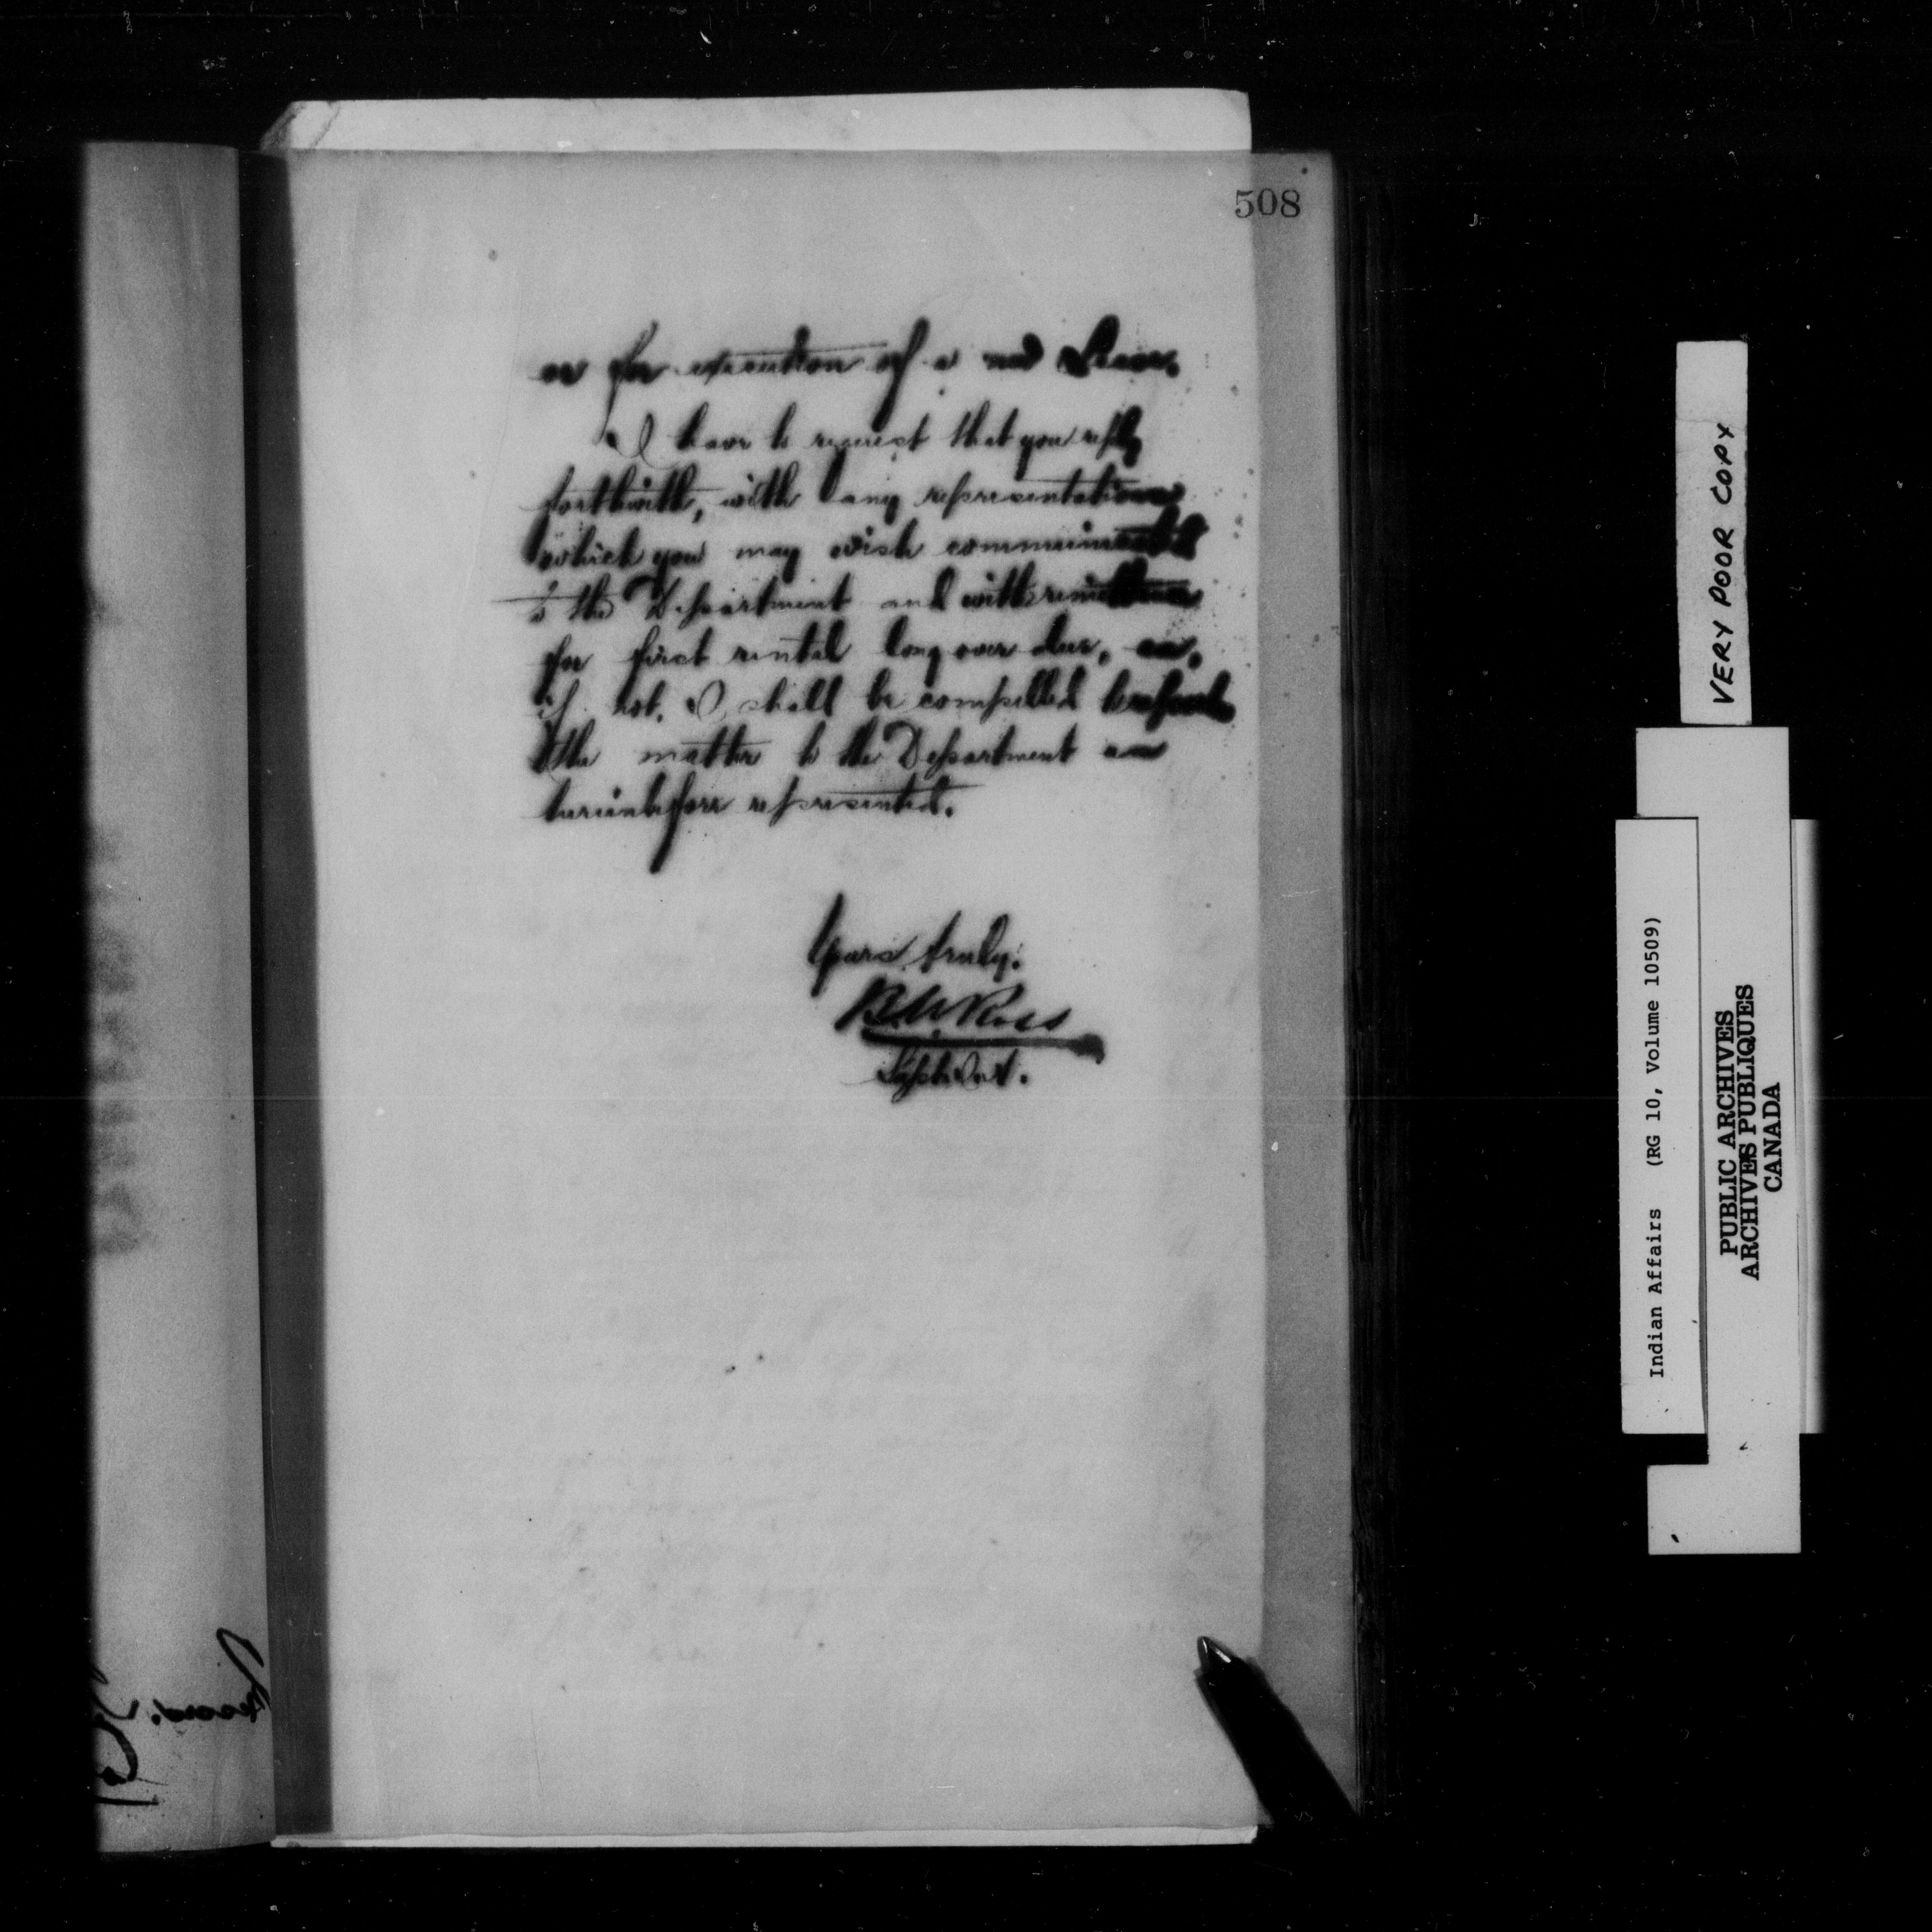 508
or for execution of a new Lease.
I have to request that you reply
forthwith, with any representations
which you may wish communicated
to the Department and with remittance
for first rental long over due, or,
if not, I shall be compelled to report
the matter to the Department as
hereinbefore represented.
Yours truly.
B.W. Ross
Supt.
VERY POOR COPY
Indian Affairs (RG 10, Volume 10509)
PUBLIC ARCHIVES
ARCHIVES PUBLIQUES
CANADA